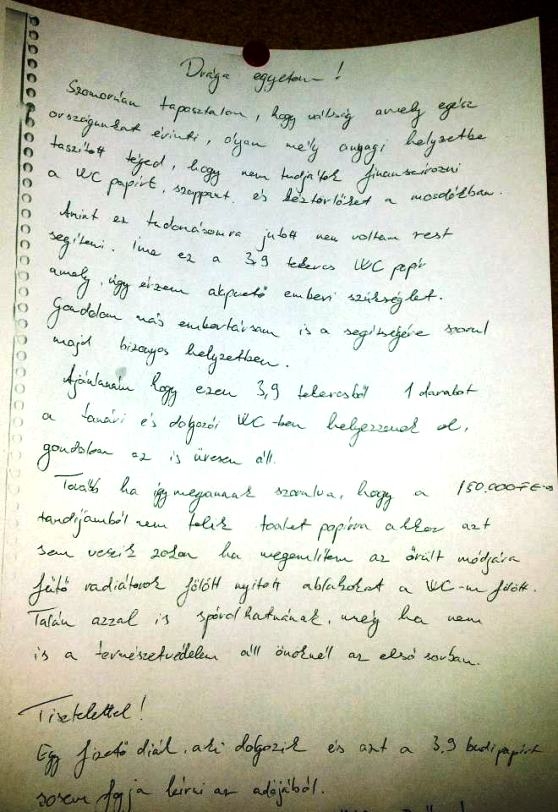 Drága egyetem!
Szomorúan tapasztalom, hogy válság amely egész
országunkat érinti, olyan mély anyagi helyzetbe
taszított téged, hogy nem tudjátok finanszírozni
a WC papírt, szappant, és kéztörlőket a mosdókban.
Amint ez tudomásomra jutott nem voltam rest
segíteni. Íme ez a 3,9 tekercs WC papír
amely, úgy érzem alapvető emberi szükséglet.
Gondolom más embertársam is a segítségére szorul
majd bizonyos helyzetben.
Ajánlanám hogy ezen 3,9 tekercsből 1 darabot
a tanári és dolgozói WC-ben helyezzenek el,
gondolom az is üresen áll.
Tovább ha így megannak szorulva, hogy a 150.000 FT-os
tandíjamból nem telik toalet papírra akkor azt
sem veszik zokon ha megemlítem az őrült módjára
fűtő radiátorok fölött nyitott ablakokat a WC-n fölött.
Talán azzal is spórolhatnának, még ha nem
is a természetvédelem áll önöknél az első sorban.
Tisztelettel!
Egy fizető diák, aki dolgozik és azt a 3,9 budipapírt
sosem fogja leírni az adójából.